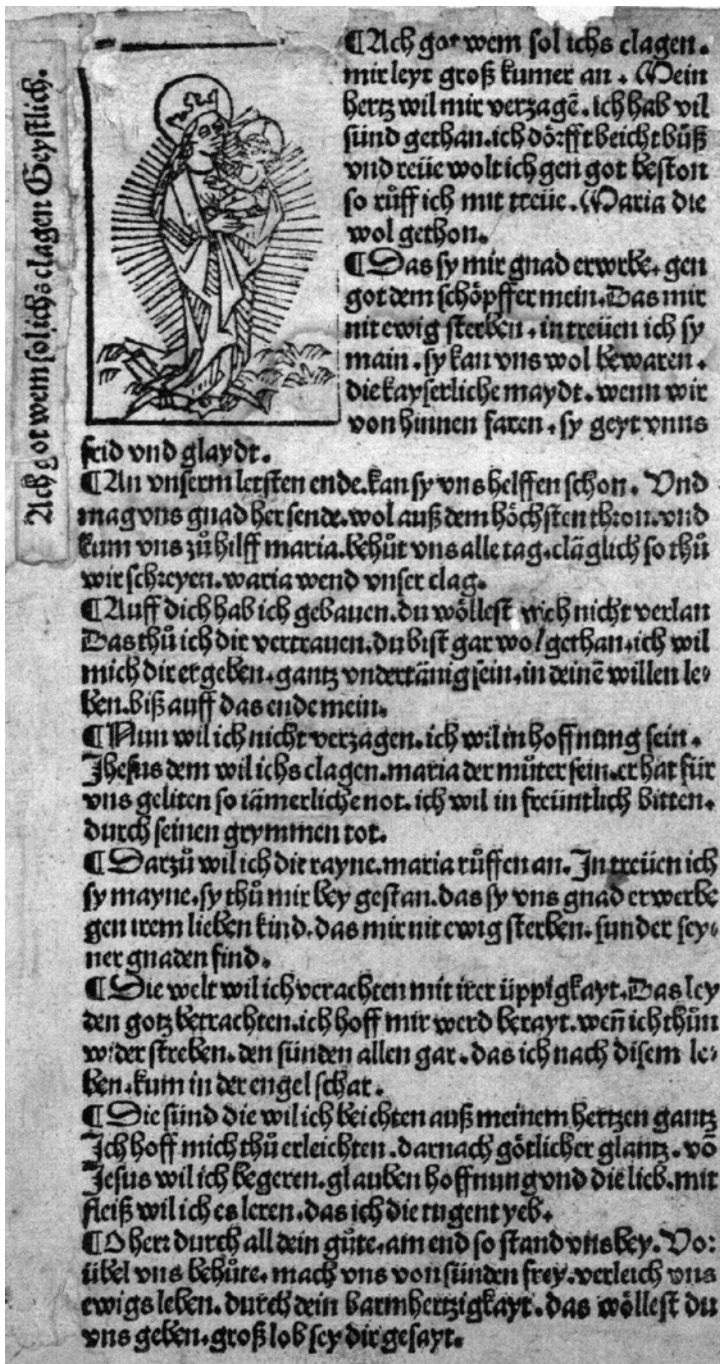 Ach got wem sol ichs clagen Geystlich.
¶Ach got wem sol ichs clagen.
mir leyt groß kumer an. Mein
hertz wil mir verzagē. ich hab vil
sünd gethan. ich dörfft beicht bůß
vnd reüe wolt ich gen got beston
so růff ich mit treüe. Maria die
wol gethon.
¶Das sy mir gnad erwerbe. gen
got dem schöpffer mein. Das mir
nit ewig sterben. in treüen ich sy
main. sy kan vns wol bewaren.
die kayserliche maydt. wenn wir
von hinnen faren. sy geyt vnns
frid vnd glaydt.
¶An vnserm letsten ende. kan sy vns helffen schon. Vnd
mag vns gnad her sende. wol auß dem höchsten thron. vnd
kum vns zů hilff maria. behůt vns alle tag. cläglich so thů
wir schreyen. waria wend vnser clag.
¶Auff dich hab ich gebauen. du wöllest mich nicht verlan
Das thů ich dir vertrauen. du bist gar wol gethan. ich wil
mich dir ergeben. gantz vndertänig sein. in deinē willen le⸗
ben. biß auff das ende mein.
¶Nun wil ich nicht verzagen. ich wil in hoffnung sein.
Jhesus dem wil ichs clagen. maria der můter sein. er hat für
vns geliten so iämerliche not. ich wil in freüntlich bitten.
durch seinen grymmen tot.
¶Darzů wil ich die rayne. maria růffen an. Jn treüen ich
sy mayne. sy thů mir bey gestan. das sy vns gnad erwerbe
gen irem lieben kind. das mir nit ewig sterben. sunder sey⸗
ner gnaden find.
¶Die welt wil ich verachten mit irer üppigkayt. Das ley
den gotz betrachten. ich hoff mir werd berayt. weñ ich thůn
wider streben. den sünden allen gar. das ich nach disem le⸗
ben. kum in der engel schar.
¶Die sünd die wil ich beichten auß meinem hertzen gantz
Jch hoff mich thů erleichten. darnach götlicher glantz. vō
Jesus wil ich begeren. glauben hoffnung vnd die lieb. mit
fleiß wil ich es leren. das ich die tugent yeb.
¶O herr durch all dein güte. am end so stand vns bey. Vor
übel vns behüte. mach vns von sünden frey. verleich vns
ewigs leben. durch dein barmhertzigkayt. das wöllest du
vns geben. groß lob sey dir gesayt.